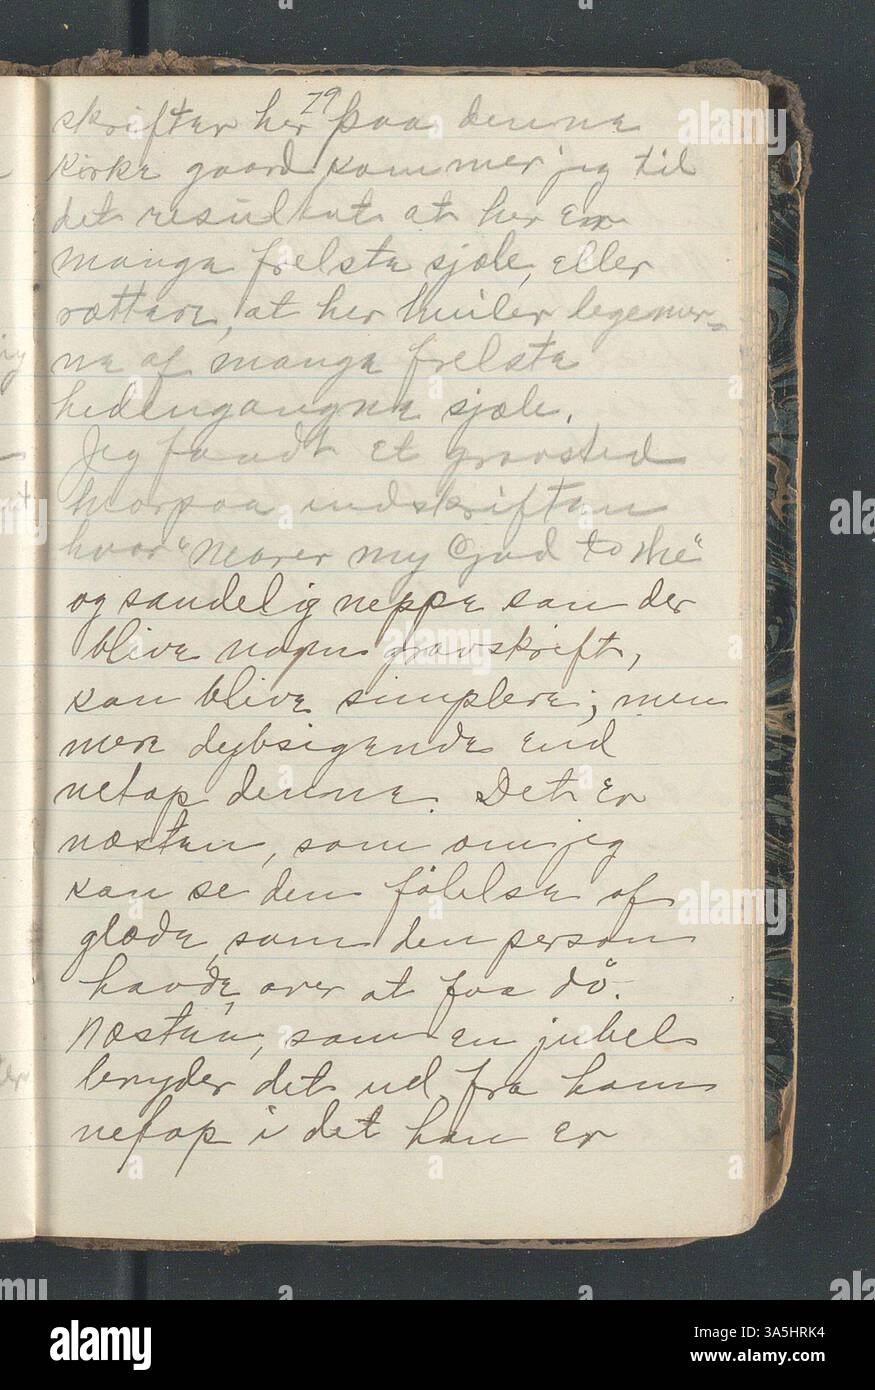 79
skrifter her paa denne
kirke gaard kommer jeg til
det resultat at her er
mange frelste sjæle, eller
rættere, at her hviler legemer-
ne af mange frelste
hedengangne sjæle.
Jeg faadt et gravsted
hvorpaa indskriften
hvor "Nearer my God to the"
og sandelig neppe kan der
blive nogen gravskrift,
kan blive simplere; men
mere dybsigende end
netop denne. Det er
næsten, som om jeg
kan se den følelse af
glæde, som den person
havde, over at faa dö.
Næsten, som en jubel
bryder det ud fra ham
netop i det han er
alamy
Image ID: 2A5HRK4
www.alamy.com